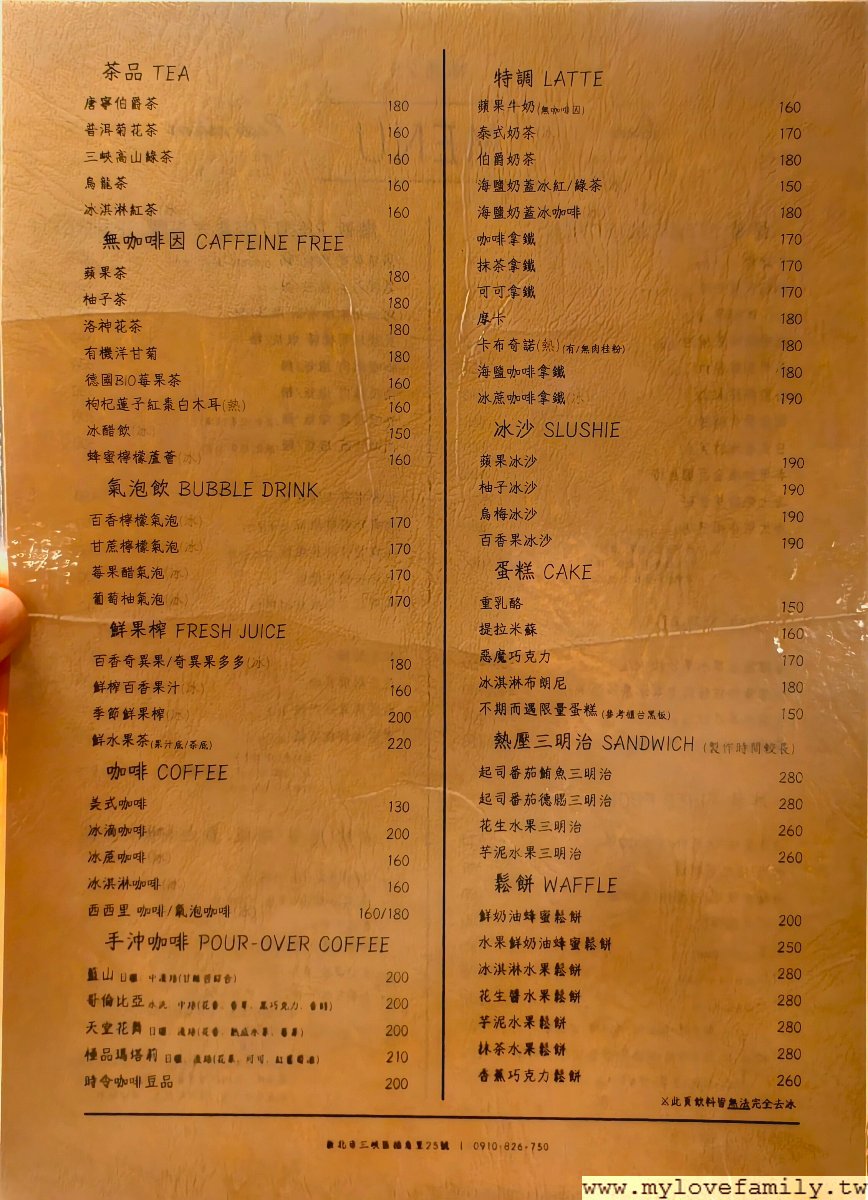 茶品 TEA
唐寧伯爵茶 180
普洱菊花茶 160
三峽高山綠茶 160
烏龍茶 160
冰淇淋紅茶 160
無咖啡因 CAFFEINE FREE
蘋果茶 180
柚子茶 180
洛神花茶 180
有機洋甘菊 180
德國BIO莓果茶 160
枸杞蓮子紅棗白木耳(熱) 160
冰醋飲(冰) 150
蜂蜜檸檬蘆薈(冰) 160
氣泡飲 BUBBLE DRINK
百香檸檬氣泡(冰) 170
甘蔗檸檬氣泡(冰) 170
莓果醋氣泡(冰) 170
葡萄柚氣泡(冰) 170
鮮果榨 FRESH JUICE
百香奇異果/奇異果多多(冰) 180
鮮榨百香果汁(冰) 160
季節鮮果榨(冰) 200
鮮水果茶(果汁底/茶底) 220
咖啡 COFFEE
美式咖啡 130
冰滴咖啡(冰) 200
冰蔗咖啡(冰) 160
冰淇淋咖啡(冰) 160
西西里 咖啡/氣泡咖啡(冰) 160/180
手沖咖啡 POUR-OVER COFFEE
藍山 日曬. 200
哥倫比亞 水洗. 中焙(花香. 莓果. 黑巧克力. 香料) 200
天堂花舞 日曬. 200
極品瑪塔莉 日曬. 210
時令咖啡豆品 200
特調 LATTE
蘋果牛奶(無咖啡因) 160
泰式奶茶(冰) 170
伯爵奶茶 180
海鹽奶蓋冰紅/綠茶(冰) 150
海鹽奶蓋冰咖啡(冰) 180
咖啡拿鐵 170
抹茶拿鐵 170
可可拿鐵 170
摩卡 180
卡布奇諾(熱)(有/無肉桂粉) 180
海鹽咖啡拿鐵 180
冰蔗咖啡拿鐵(冰) 190
冰沙 SLUSHIE
蘋果冰沙 190
柚子冰沙 190
烏梅冰沙 190
百香果冰沙 190
蛋糕 CAKE
重乳酪 150
提拉米蘇 160
惡魔巧克力 170
冰淇淋布朗尼 180
不期而遇限量蛋糕(參考櫃台黑板) 150
熱壓三明治 SANDWICH (製作時間較長)
起司番茄鮪魚三明治 280
起司番茄德腸三明治 280
花生水果三明治 260
芋泥水果三明治 260
鬆餅 WAFFLE
鮮奶油蜂蜜鬆餅 200
水果鮮奶油蜂蜜鬆餅 250
冰淇淋水果鬆餅 280
花生醬水果鬆餅 280
芋泥水果鬆餅 280
抹茶水果鬆餅 280
香蕉巧克力鬆餅 260
※此頁飲料皆無法完全去冰
新北市三峽區 25號 | 0910-826-750
www.mylovefamily.tw